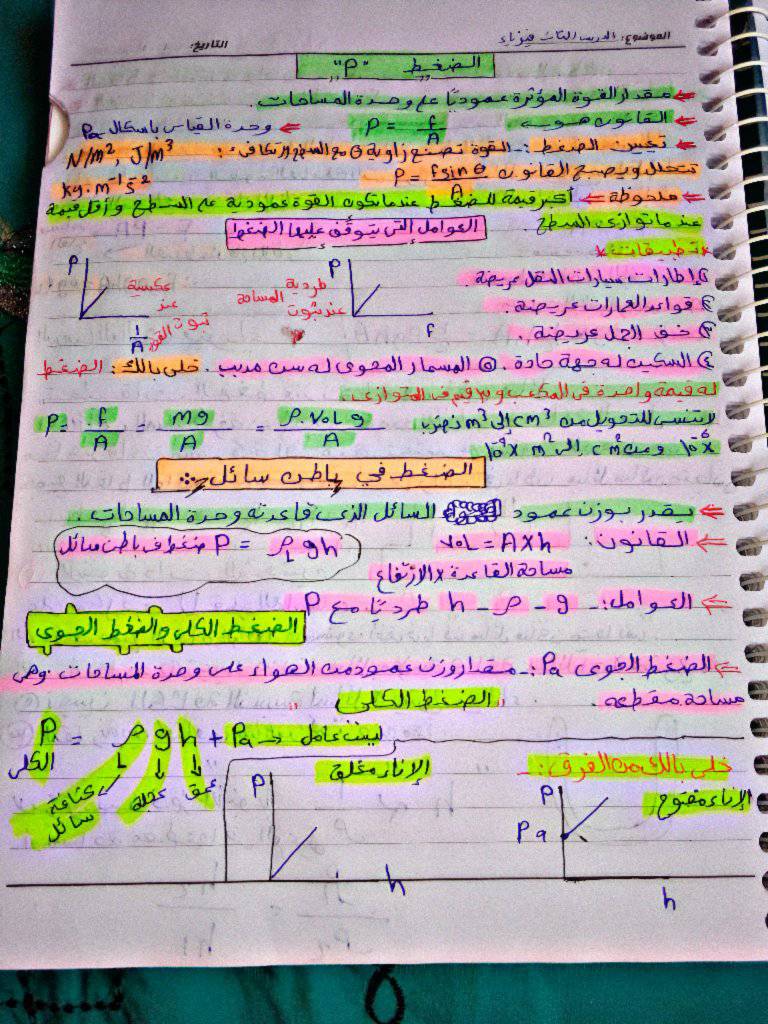 الموضوع: الدرس الثالث فيزياء
التاريخ:
الضغط "P"
مقدار القوة المؤثرة عموديًا على وحدة المساحات.
القانون هو:- P = f/A ⇐ وحدة القياس باسكال Pa
تعيين الضغط:- القوة تصنع زاوية θ مع السطح N/m², J/m³
تتحلل ويصبح القانون P = f sin θ / A kg.m⁻¹ s⁻²
ملحوظة ⇐ أكبر قيمة للضغط عندما تكون القوة عمودية على السطح وأقل قيمة
عندما توازى السطح.
العوامل التى يتوقف عليها الضغط
*تطبيقات*
P
f
طردية عند ثبوت المساحة
P
1/A
عكسية عند ثبوت القوة
① إطارات سيارات النقل عريضة
② قواعد العمارات عريضة.
③ خف الجمل عريضة.
④ السكين له جهة حادة. ⑤ المسمار له سن مدبب. خلى بالك: الضغط
له قيمة واحدة فى المكعب و٣ قيم ف المتوازى.
P = f/A = mg/A = ρ.VoL g/A
لاتنسى للتحويل من cm³ إلى m³ نضرب
10⁻⁶x ومن cm² إلى m² x10⁻⁴
الضغط في باطن سائل
يقدر بوزن عمود السائل الذى قاعدته وحدة المساحات.
القانون: VoL = A x h P = ρL gh ضغط ف باطن سائل
مساحة القاعدة x الارتفاع
العوامل:- h - ρ - g طرديًا مع P
الضغط الكلى والضغط الجوى
الضغط الجوى Pa:- مقدار وزن عمود من الهواء على وحدة المساحات وهى
مساحة مقطعه. "الضغط الكلى"
P = ρ g h + Pa → ليس عامل
الكلى
كثافة سائل
عجلة
عمق
خلى بالك من الفرق:-
الإناء مفتوح
P
Pa
h
الإناء مغلق
P
h